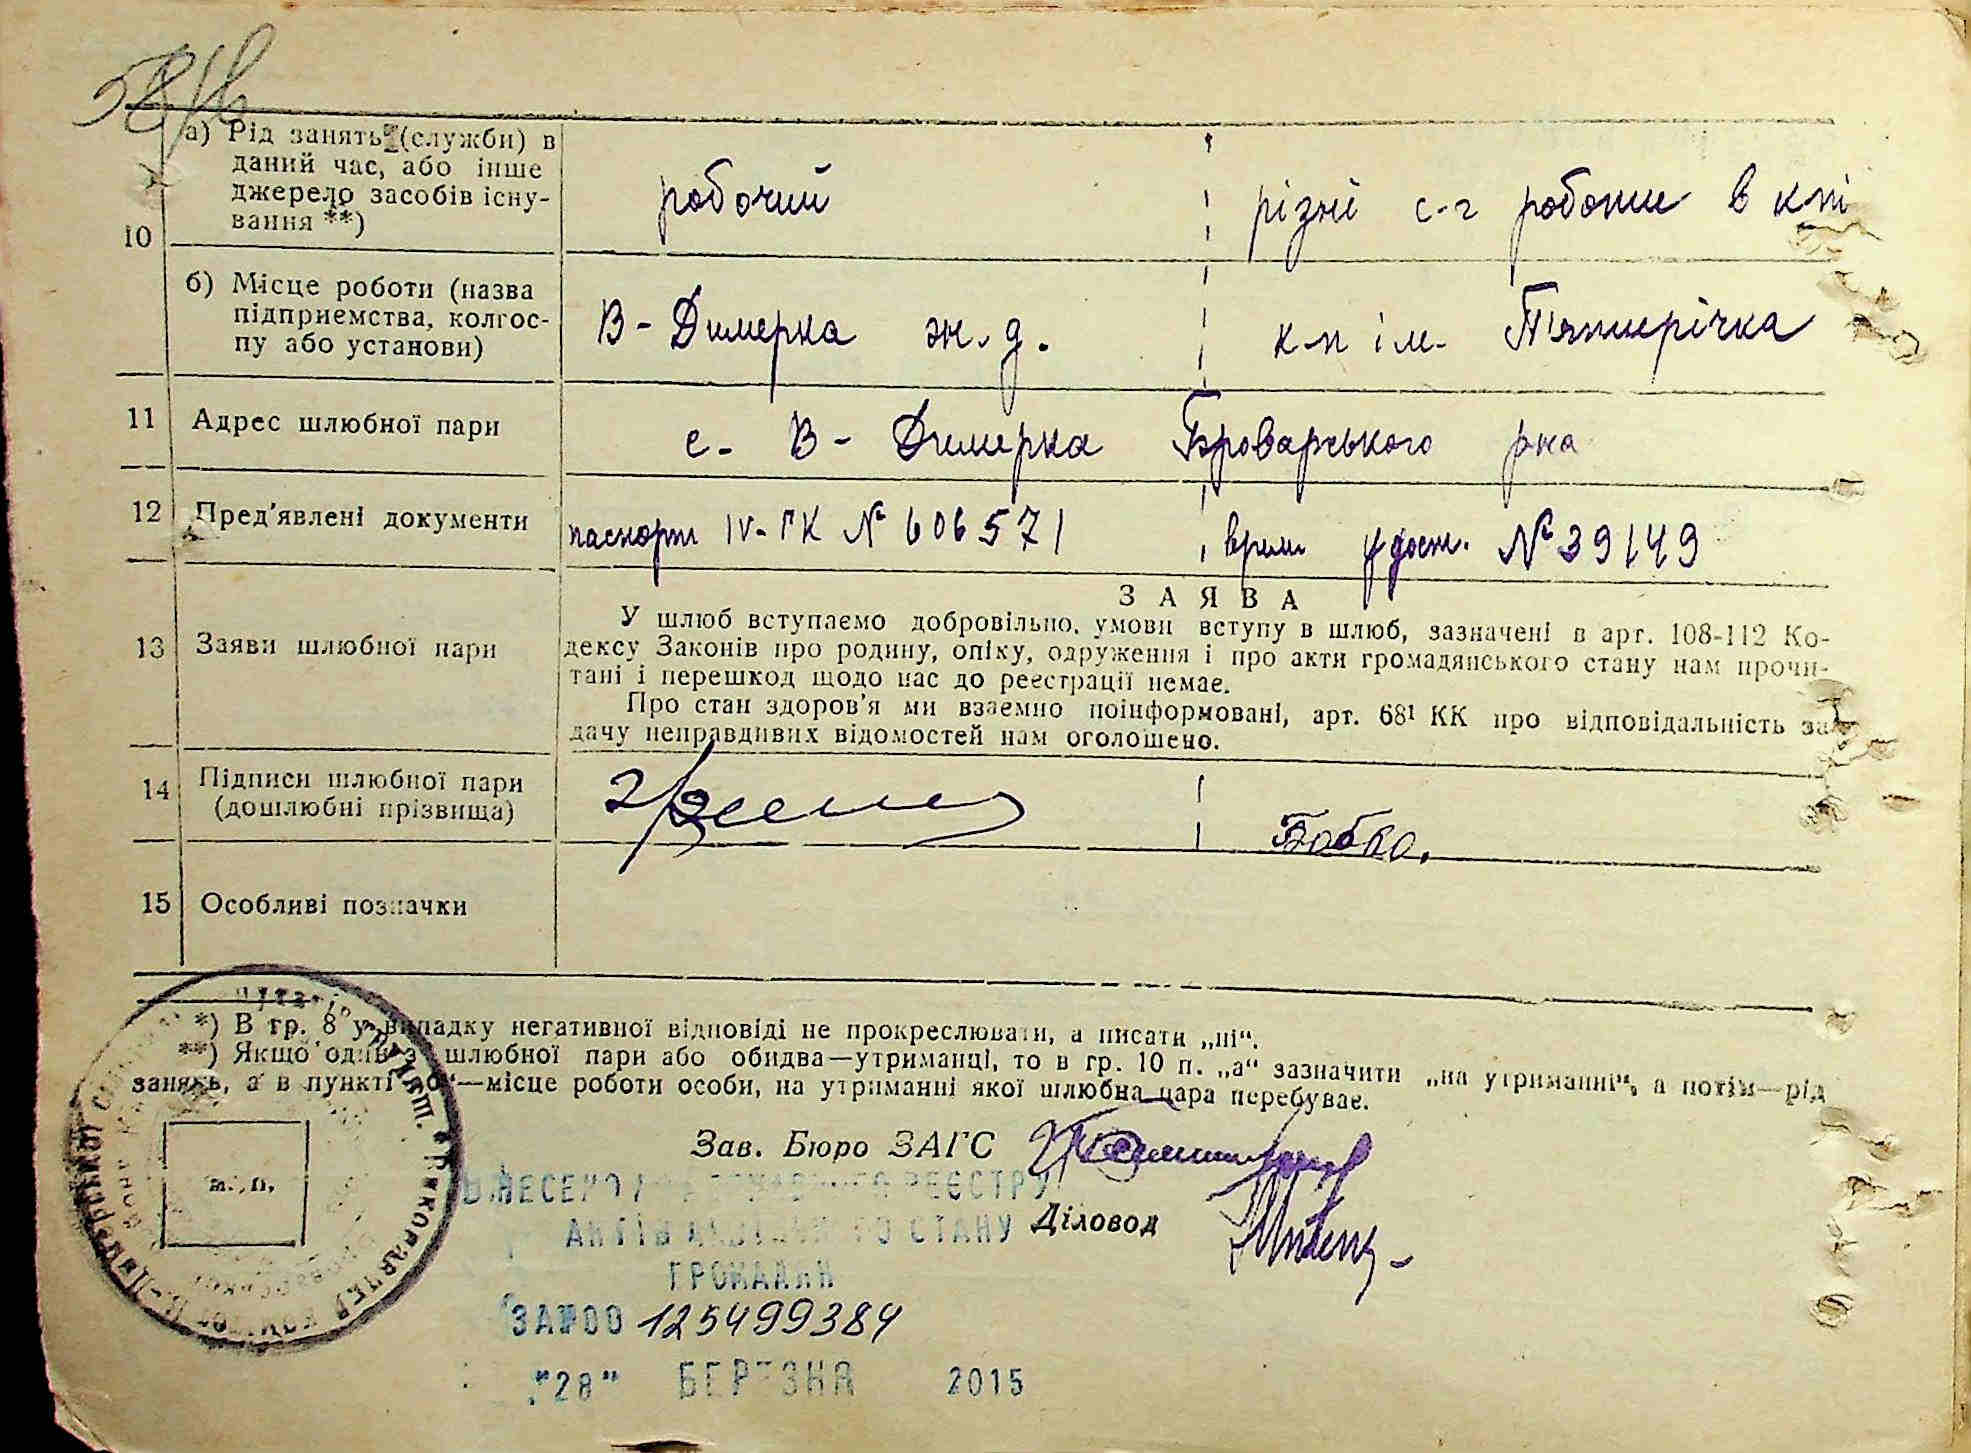 10
а) Рід занять (служби) в
даний час, або інше
джерело засобів існу-
вання **)
робочий
різні с-г роботи в кпі
б) Місце роботи (назва
підприємства, колгос-
пу або установи)
В-Димерка ж.д.
к-п ім. П'ятирічка
11 Адрес шлюбної пари
с. В-Димерка Броварського рна
12 Пред'явлені документи
паспорт IV-ГК № 606571
врем удост. № 39149
13 Заяви шлюбної пари
ЗАЯВА
У шлюб вступаємо добровільно, умови вступу в шлюб, зазначені в арт. 108-112 Ко-
дексу Законів про родину, опіку, одруження і про акти громадянського стану нам прочи-
тані і перешкод щодо нас до реєстрації немає.
Про стан здоров'я ми взаємно поінформовані, арт. 68¹ КК про відповідальність за
дачу неправдивих відомостей нам оголошено.
14 Підписи шлюбної пари
(дошлюбні прізвища)
Бобко.
15 Особливі позначки
*) В гр. 8 у випадку негативної відповіді не прокреслювати, а писати „ні“.
**) Якщо один з шлюбної пари або обидва—утриманці, то в гр. 10 п. „а“ зазначити „на утриманні“, а потім—рід
занять, а в пункті „б“—місце роботи особи, на утриманні якої шлюбна пара перебуває.
Зав. Бюро ЗАГС
м. п.
ВНЕСЕНО ДО ДЕРЖАВНОГО РЕЄСТРУ
АКТІВ ЦИВІЛЬНОГО СТАНУ
Діловод
ГРОМАДЯН
ЗА №00 125499384
"28" БЕРЕЗНЯ 2015